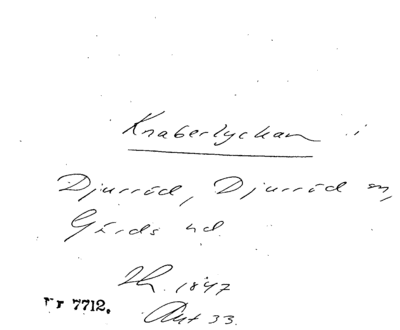 Knaberlyckan i
Djurröd, Djurröd sn,
Gärds hd
Th. 1847
Ant 33.
Nr 7712.